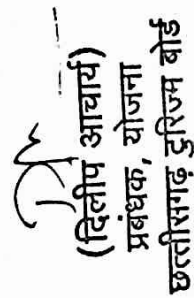 (दिलीप आचार्य)
प्रबंधक, योजना
छत्तीसगढ़ टूरिज्म बोर्ड